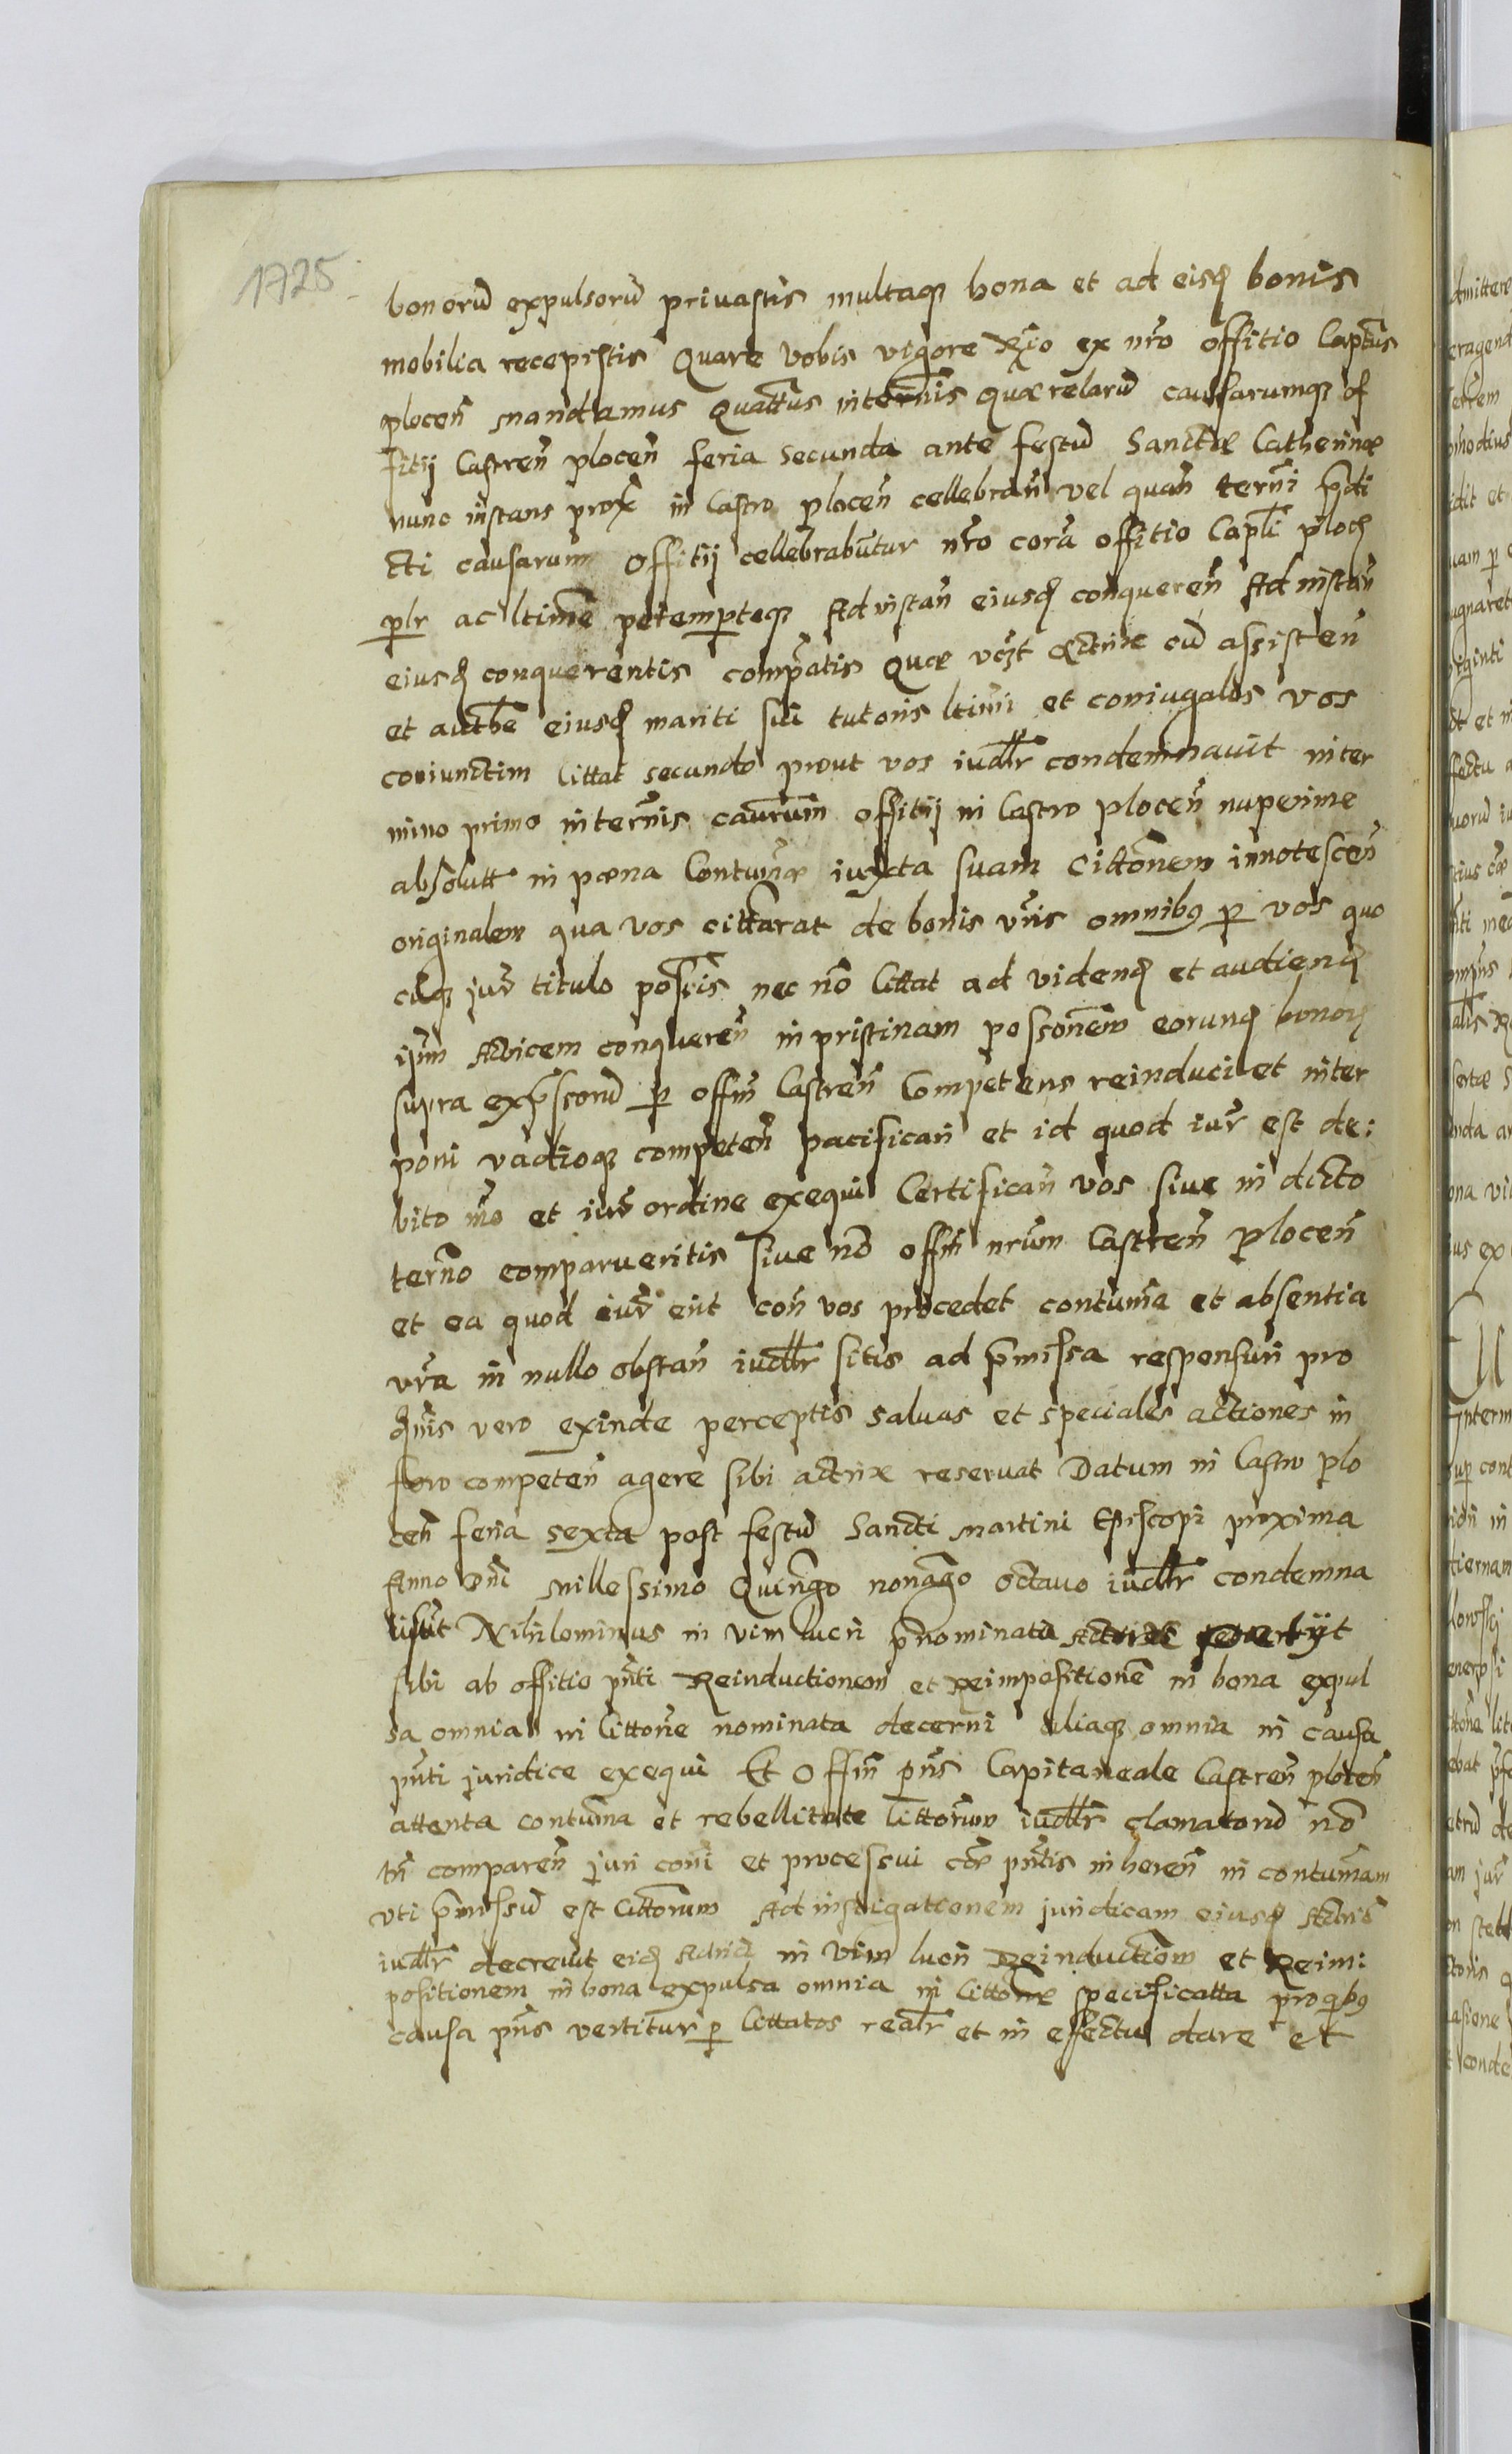 1725
bonorū expulsorū priuastis multaq bona et ad eisd bonis
mobilia recepistis Quare vobis vigore Rgio ex nro offitio Captus
plocen mandamus Quattus in ternis quærelarū causarumq of
fitij Castren plocen feria secunda ante festū Sanctæ Catherinæ
nunc instans prox in Castro plocen cellebran vel quan terni prdi
cti causarum Offitij cellebrabuntur nro corā offitio Caplī ploc
plr ac ltime peremptoq Ad instan eiusd conqueren Ad instan
eiusd conquerentis compatis Quæ vos Actrix cū assisten
et authe eiusd mariti sui tutoris ltimi et coniugalis vos
coniunctim Cittat secundo prout vos iudlr condemnauit in ter
mino primo in ternis causarum offitij in Castro plocen nuperime
absolutt in pœna Contumæ iuxta suam Cittonem innotescen
originalem qua vos cittarat de bonis vris omnibq p vos quo
cūq jur titulo possis nec nō Cittat ad videnđ et audienđ
ipsum Actricem conqueren in pristinam possonem eorund bonoꝝ
supra exprsorū p offm Castren Competens reinduci et inter
poni vadioq competen pacifican et id quod iur est de:
bito mo et iur ordine exequi Certifican vos siue in dicto
terno comparueritis siue nō offm nrum Castren plocen
et ea quod iur erit con vos procedet contume et absentia
vra in nullo obstan iudlr sitis ad prmissa responsuri pro
vero exinde perceptis saluas et speciales actiones in
foro competen agere sibi actrix reseruat Datum in Castro plo
cen feria sexta post festū Sancti Martini Episcopi proxima
Anno Dni Millessimo Quingo nonagō octauo iudlr condemna
Nihilominus in vim lucri prnominata
sibi ab offitio pnti Reinductionem et Reimpositionē in bona expul
sa omnia in Cittone nominata decerni aliaq omnia in causa
pnti juridice exequi Et Offm pns Capitaneale Castren plocen
attenta contuma et rebellitate Cittorum iudlr clamatorū nō
tn comparen juri coni et processui cæ pntis in heren in contumam
vti prmissū est Cittorum Ad instigationem juridicam eiusd Actris
iudlr decreuit eid Actrici in vim lucri Reinductiōm et Reim:
positionem in bona expulsa omnia in Cittone specificatta pro qibq
causa pns vertitur p Cittatos realr et in effectu dare et